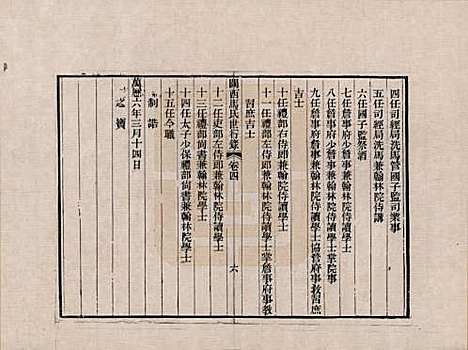 四任司經局洗馬管國子監司業事
五任司經局洗馬兼翰林院侍講
六任國子監祭酒
七任詹事府少詹事兼翰林院侍讀學士
八任詹事府詹事兼翰林院侍讀學士掌院事
九任詹事府詹事兼翰林院侍讀學士協管府事教習庶
吉士
十任禮部右侍郎兼翰林院侍讀學士
十一任禮部左侍郎兼翰林院侍讀學士掌詹事府事教
習庶吉士
關西馬氏世行錄 卷四 六
十二任吏部左侍郎兼翰林院侍讀學士
十三任禮部尚書兼翰林院學士
十四任太子少保禮部尚書兼翰林院學士
十五任今職
制誥
萬曆六年三月十四日
之寶